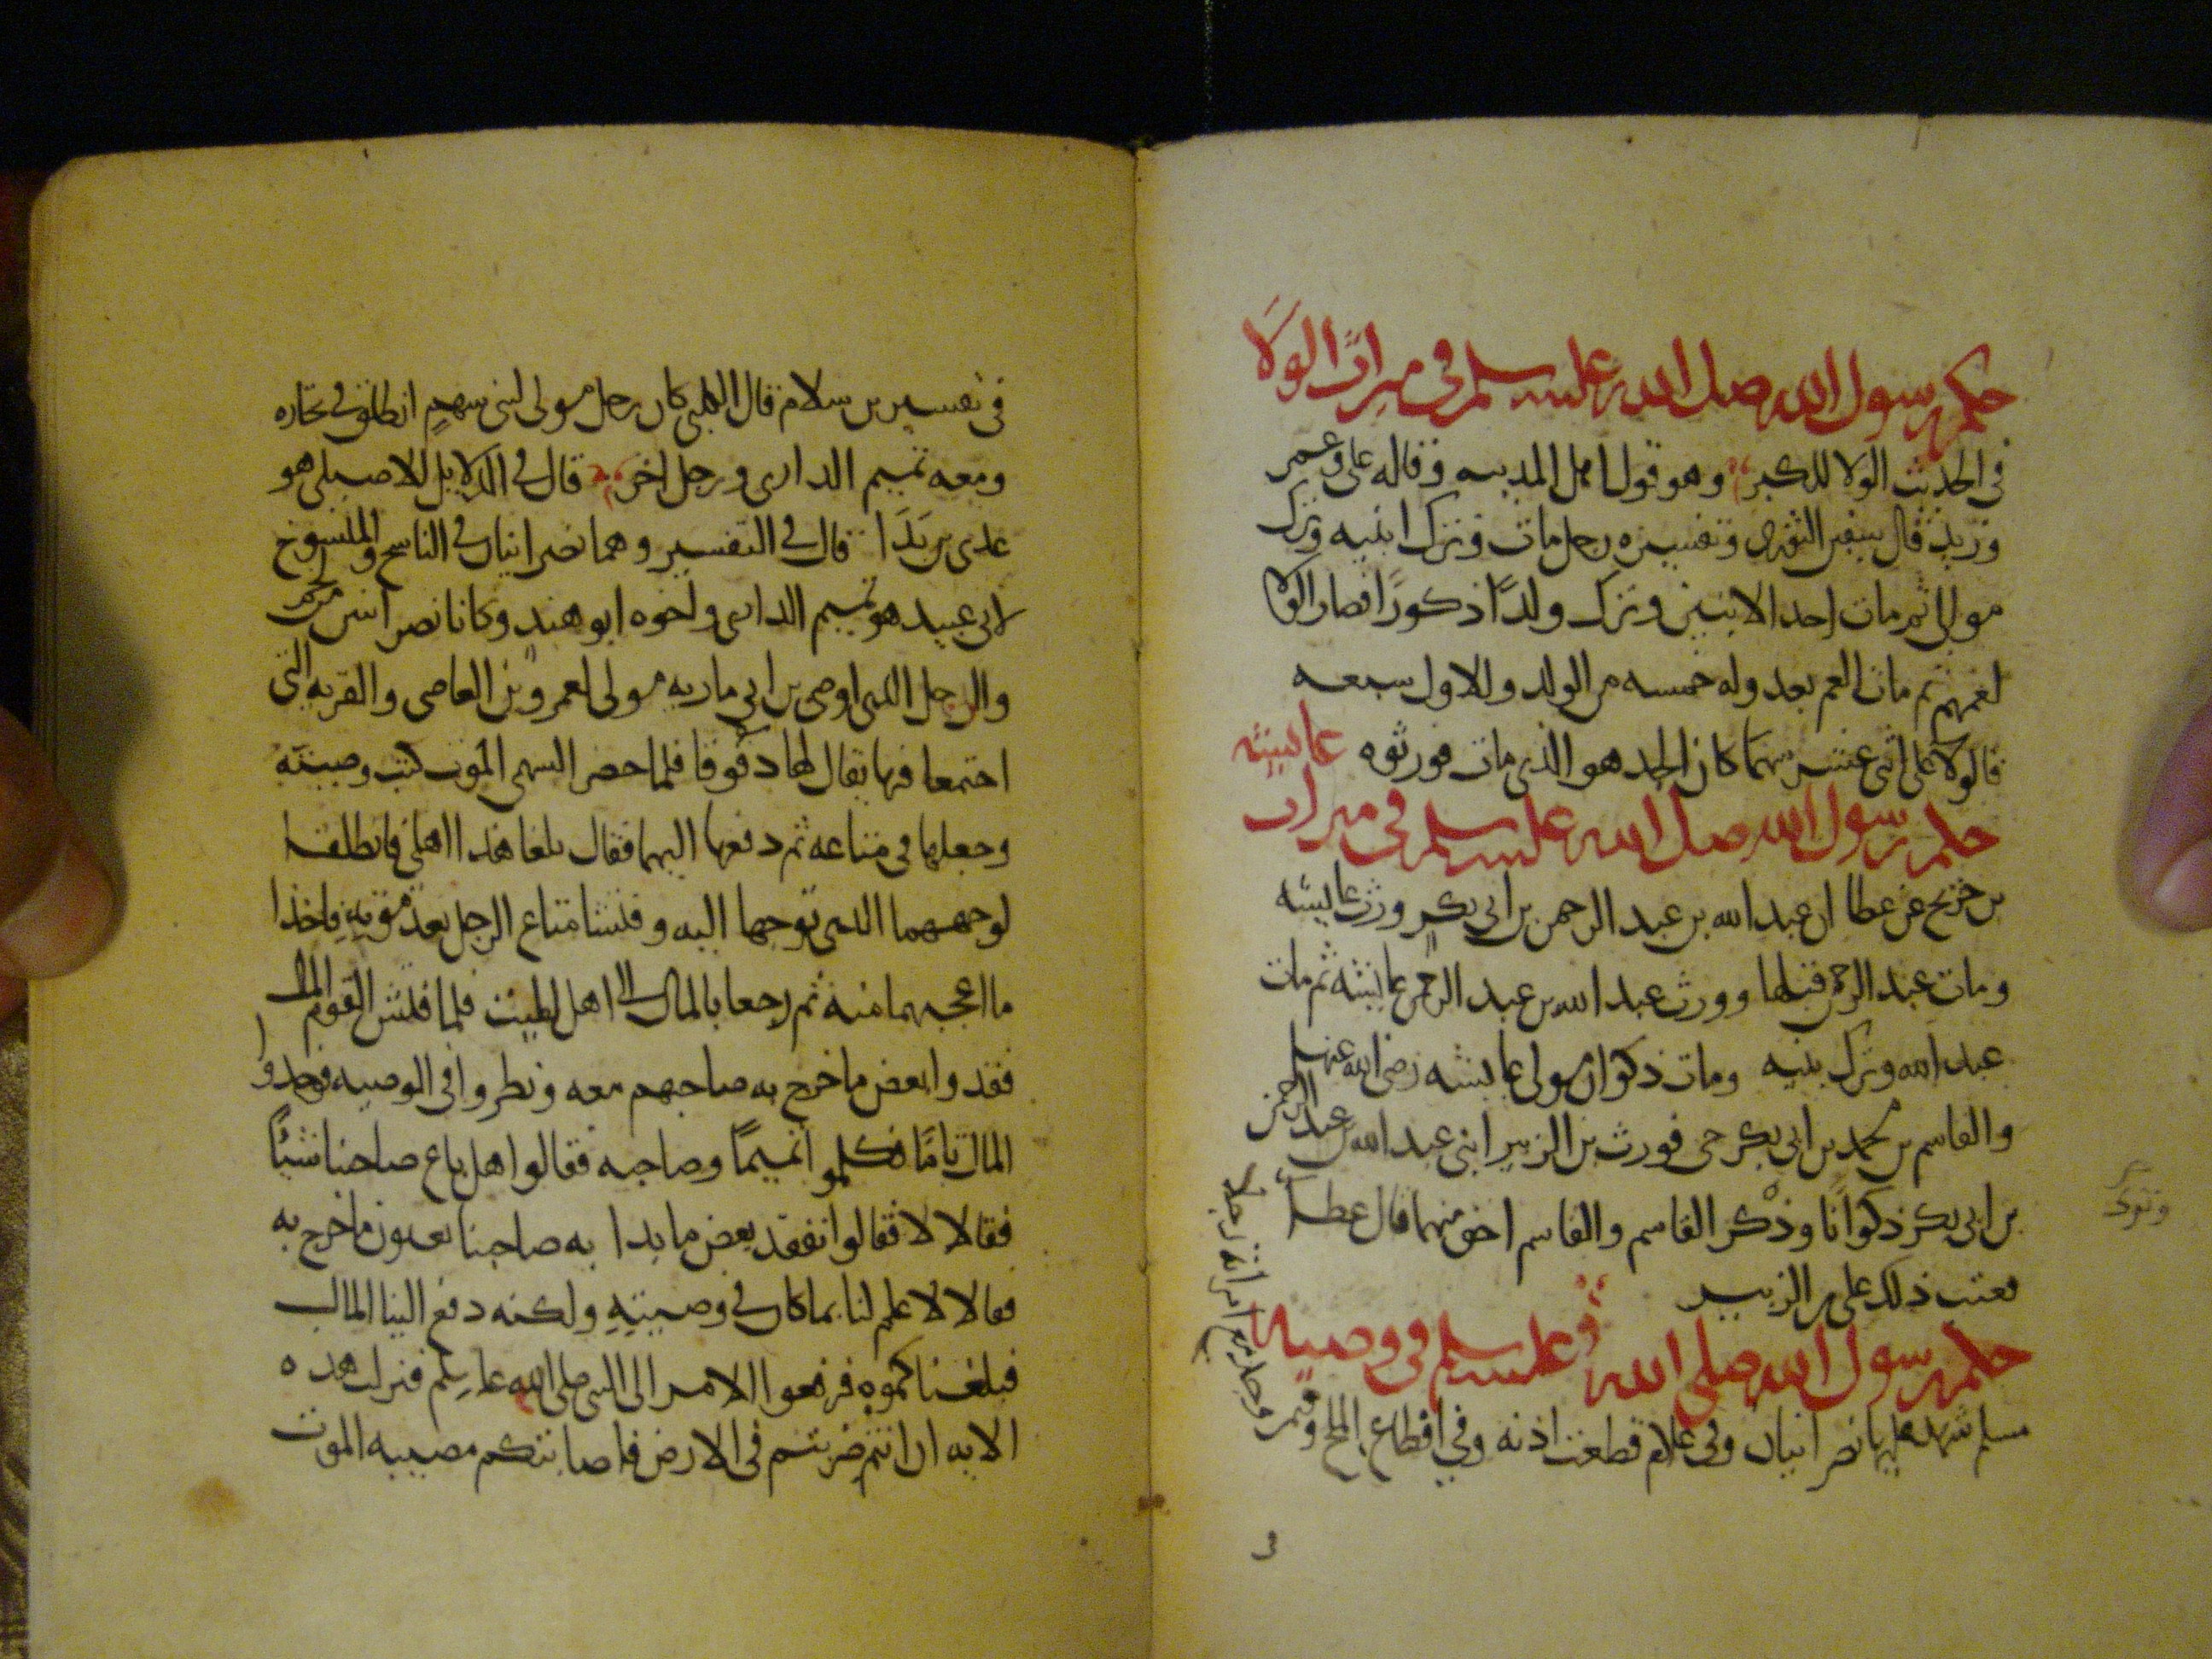 حكم رسول الله صلى الله عليه وسلم في ميراث الولا
في الحديث الولا للكبر وهو قول اهل المدينه وقاله على وعمر
وزيد قال سفين الثورى وتفسيره رجل مات وترك ابنيه وترك
موالى ثم مات احد الابنين وترك ولدا ذكورا فصار الولا
لعمهم ثم مات العم بعد وله خمسه من الولد وللاول سبعه
فالولا على اثنى عشر سهما كان الجد هو الذى مات فورثوه
حكم رسول الله صلى الله عليه وسلم في ميراث عايشه
بن جريج عن عطا ان عبد الله بن عبد الرحمن بن ابى بكر ورث عايشه
ومات عبد الرحمن قبلها وورث عبد الله بن عبد الرحمن عايشه ثم مات
عبد الله وترك بنيه ومات ذكوان مولى عايشه رضى الله عنها
والقاسم بن محمد بن ابى بكر حى فورث بن الزبير ابنى عبد الله بن عبد الرحمن
بن ابى بكر ذكوانا وذكر القاسم والقاسم احق منهما قال عطا
فعتب ذلك على بن الزبير
حكم رسول الله صلى الله عليه وسلم فى وصية
مسلم شهد عليها نصرانيان وفى غلام قطعت اذنه وفي اقطاع الملح وفيمن وجد مع امراته رجلا
فى تفسير بن سلام قال الكلبى كان رجل مولى لبنى سهم انطلق في تجاره
ومعه تميم الدارى ورجل اخر قال في الدلايل للاصيلى هو
عدى بن بَدَا قال في التفسير وهما نصرانيان في الناسخ والمنسوخ
لابى عبيد هو تميم الدارى واخوه ابو هند وكانا نصرانيين
والرجل الذى اوصى بن ابي ماريه مولى لعمرو بن العاصى والقريه التى
اجتمعا فيها يقال لها دقوقا فلما حضر السهمى الموت كتب وصيته
وجعلها في متاعه ثم دفعها اليهما فقال بلغا هذا اهلى فانطلقا
لوجههما الذى توجها اليه وفتشا متاع الرجل بعد موته فاخذا
ما اعجبهما منه ثم رجعا بالمال الى اهل الميت فلما فتش القوم المال
فقدوا بعض ما خرج به صاحبهم معه ونظروا فى الوصيه فوجدوا
المال تاما فكلموا تميما وصاحبه فقالوا هل باع صاحبنا شيئا
فقالا لا فقالوا انفقد بعض ما بدا به صاحبنا يعنون ما خرج به
فقالا لا علم لنا بما كان في وصيته ولكنه دفع الينا المال
فبلغناكموه فرفعوا الامر الى النبى صلى الله عليه وسلم فنزلت هذه
الايه ان انتم ضربتم فى الارض فاصابتكم مصيبه الموت